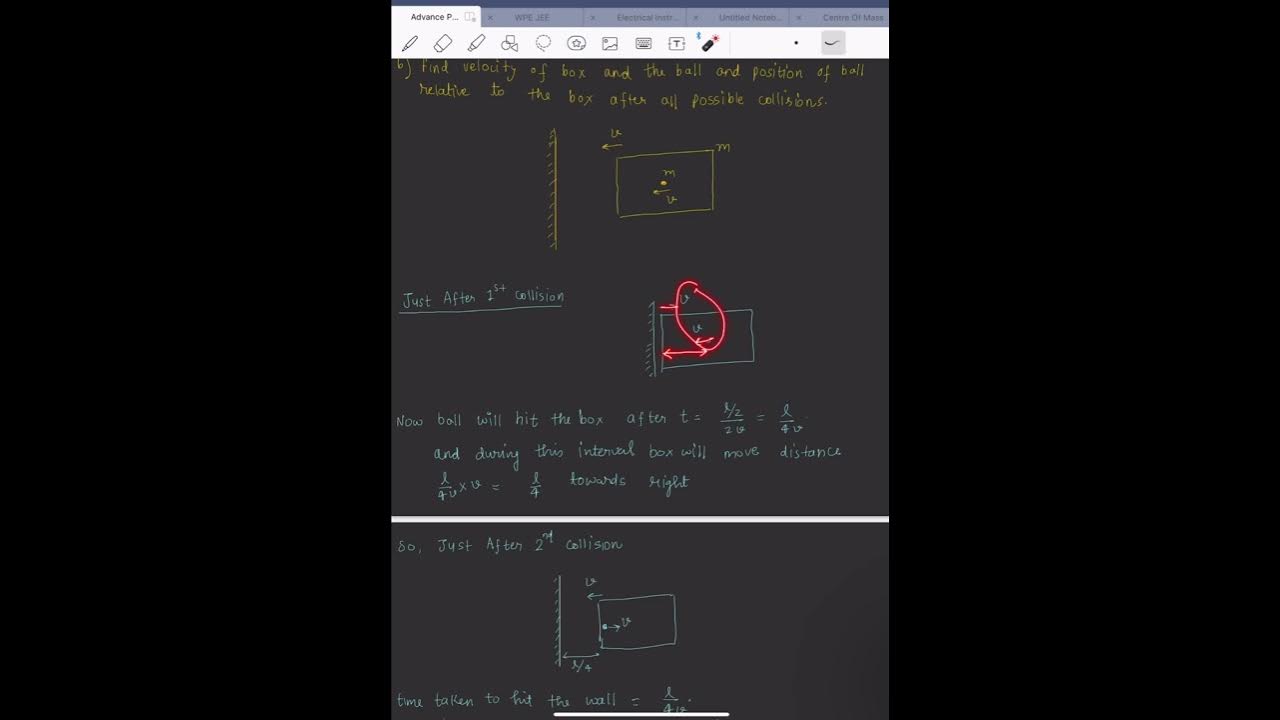 Advance P...
WPE JEE
Electrical Instr...
Untitled Noteb...
Centre Of Mass
b) Find velocity of box and the ball and position of ball
relative to the box after all possible collisions.
v
m
m
v
Just After 1st Collision
v
v
Now ball will hit the box after t = l/2 / 2v = l/4v.
and during this interval box will move distance
l/4v × v = l/4 towards right
So, Just After 2nd Collision
v
v
l/4
time taken to hit the wall = l/4v.